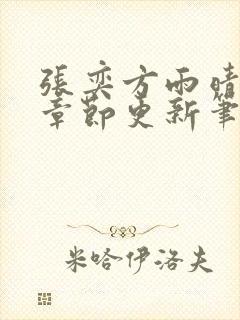 張奕方雨晴
章節更新筆
米哈伊洛夫